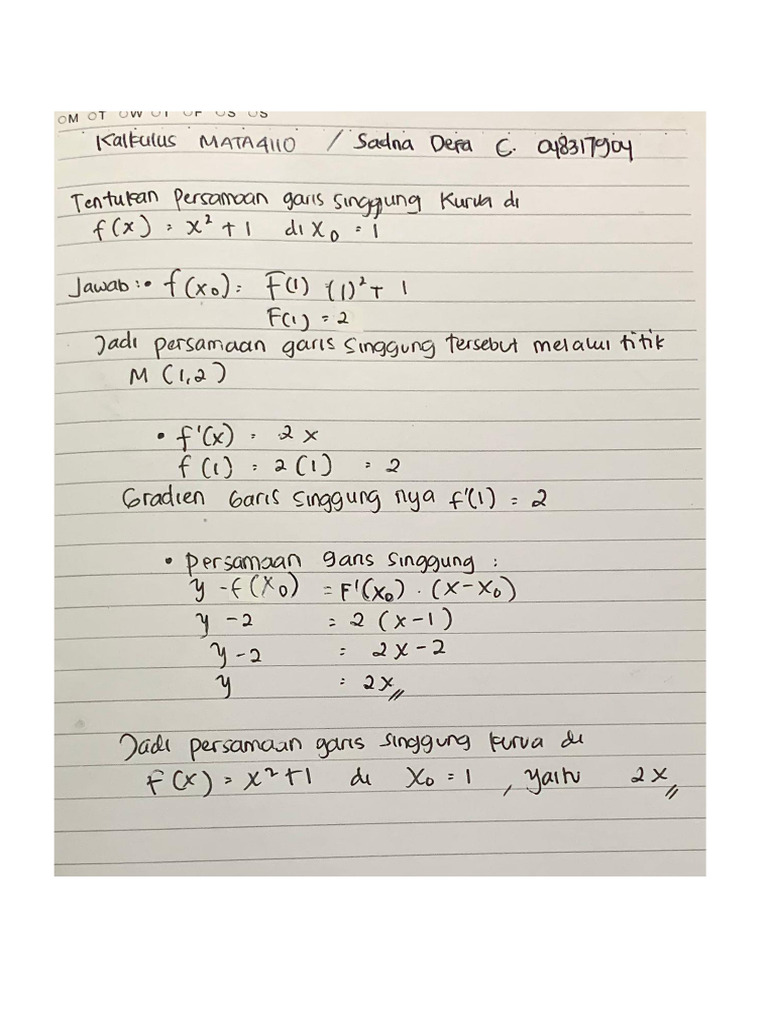 OM OT OW OT OF OS OS
Kalkulus MATA4110 / Sadna Defa C. 048317904
Tentukan Persamaan garis singgung Kurva di
f(x) = x² + 1 di x₀ = 1
Jawab : • f(x₀) = F(1) (1)² + 1
F(1) = 2
Jadi persamaan garis singgung tersebut melalui titik
M (1,2)
• f'(x) = 2x
f (1) = 2 (1) = 2
Gradien Garis singgung nya f'(1) = 2
• persamaan garis singgung :
y - f(x₀) = F'(x₀) · (x - x₀)
y - 2 = 2 (x - 1)
y - 2 = 2x - 2
y = 2x //
Jadi persamaan garis singgung kurva di
f(x) = x² + 1 di x₀ = 1 , yaitu 2x //